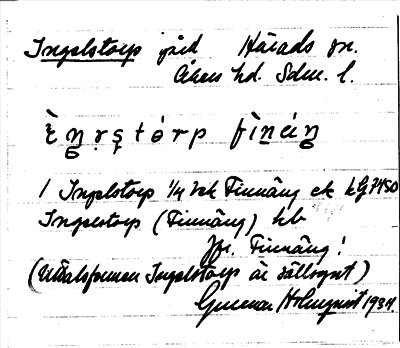 Ingelstorp gård Härads sn.
Åkers hd. Sdm. l.
ὲŋɤștórp fìṉáŋ
1 Ingelstorp 1/4 hek Finnäng ek kG 7450
Ingelstorp (Finnäng) hb
Jfr. Finnäng!
(Uttalsformen Ingelstorp är sällsynt)
Gunnar Holmquist 1934.